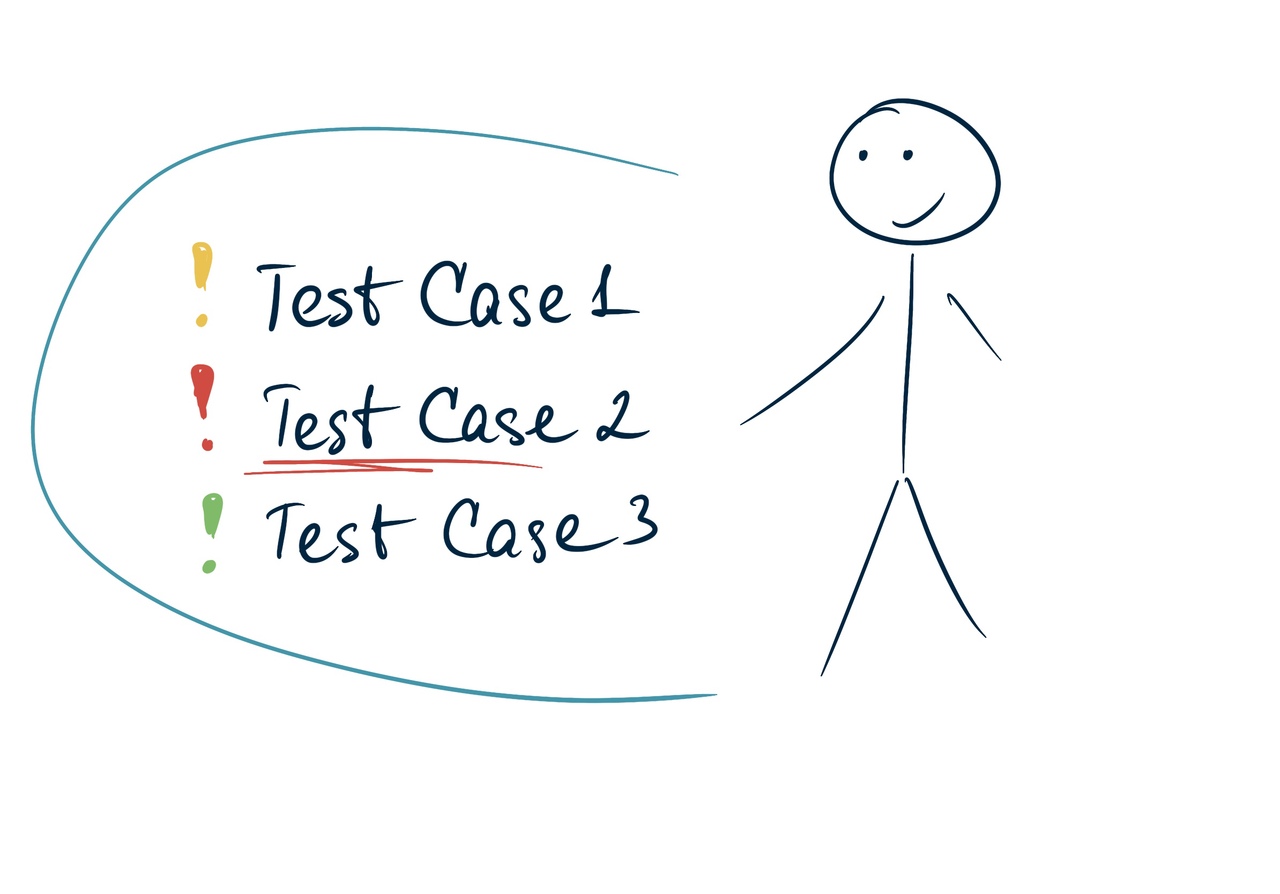 ! Test Case 1
! Test Case 2
! Test Case 3